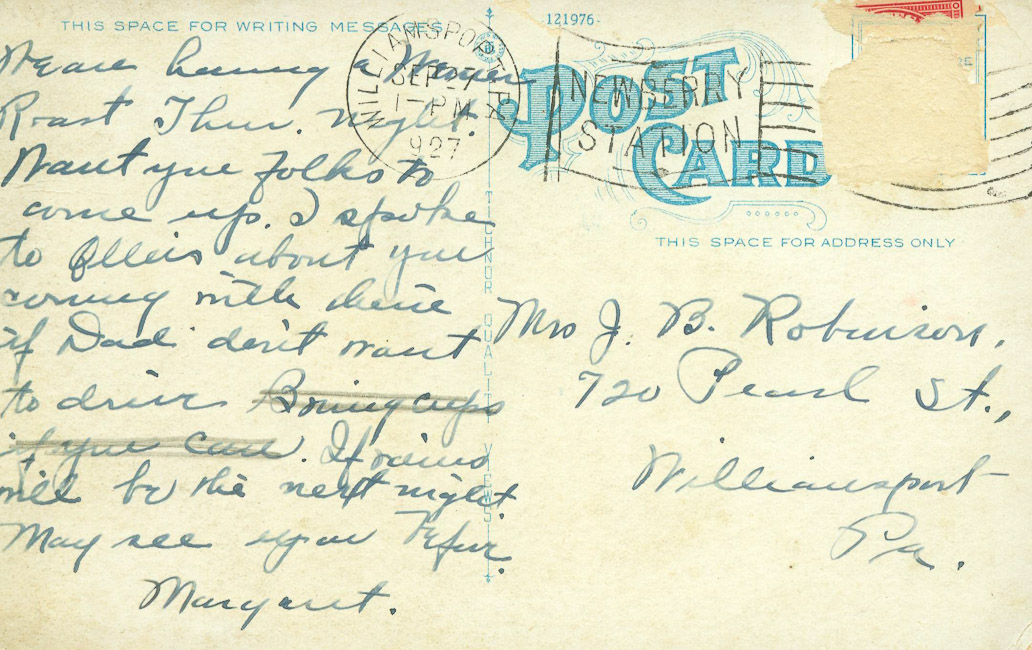 THIS SPACE FOR WRITING MESSAGES
We are having a Wener
Roast Thur. night.
Want you folks to
come up. I spoke
to Ellis about you
coming with
if Dad don't want
to drive Bring cups
if you can. If rains
will be the next night.
May see you before.
Margaret.
WILLIAMSPORT, PA
SEP 27
1-PM
1927
NEWBERRY
STATION
121976
POST
CARD
THIS SPACE FOR ADDRESS ONLY
TICHNOR QUALITY VIEWS
Mrs J. B. Robinson,
720 Pearl St.,
Williamsport
Pa.